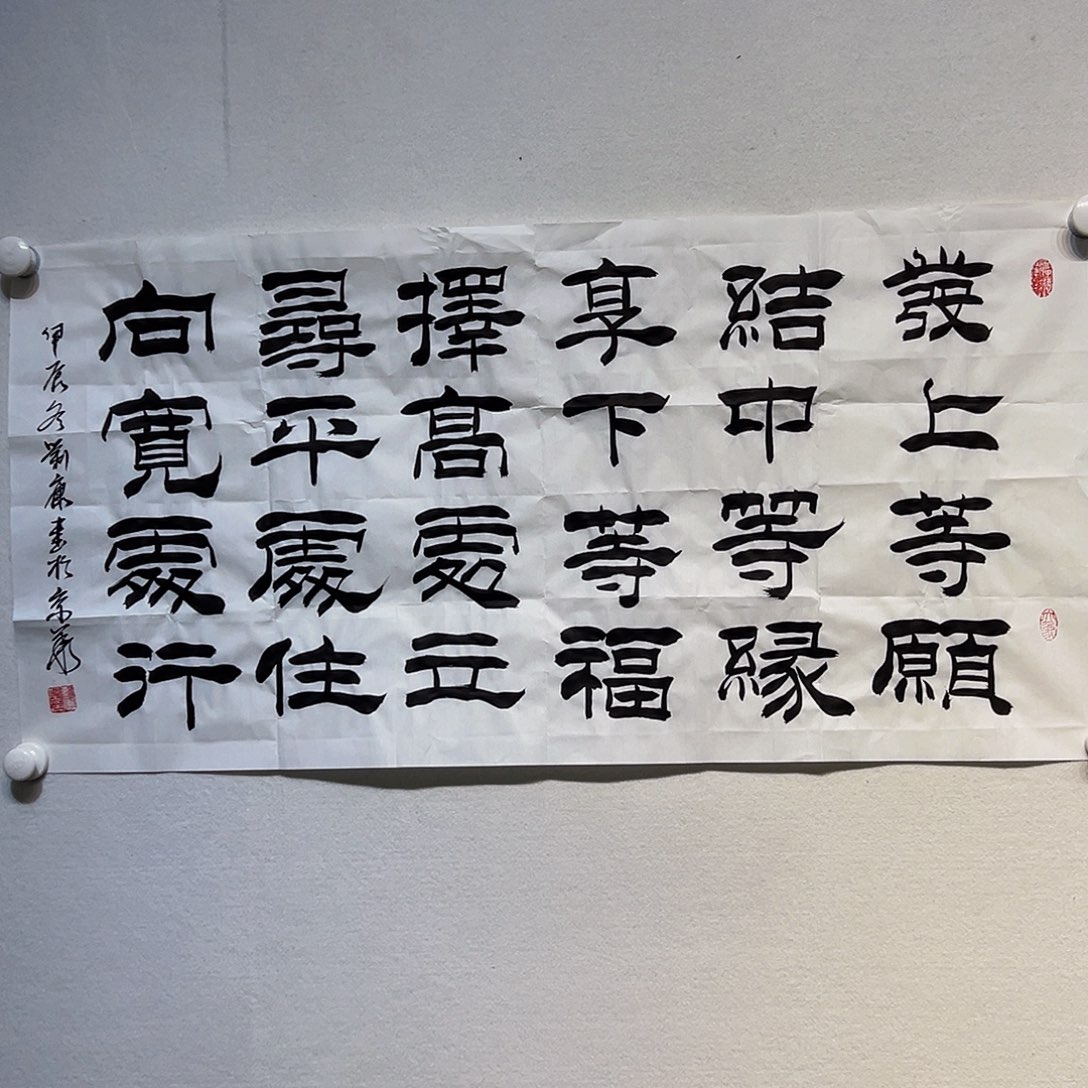 發上等願
結中等緣
享下等福
擇高處立
尋平處住
向寬處行
甲辰冬劉康書於京華